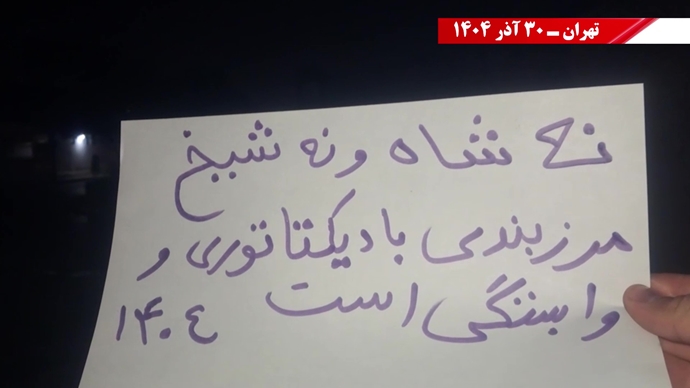 تهران ـ ۳۰ آذر ۱۴۰۴
نه شاه و نه شیخ
مرزبندی با دیکتاتوری و
وابستگی است ۱۴۰٤